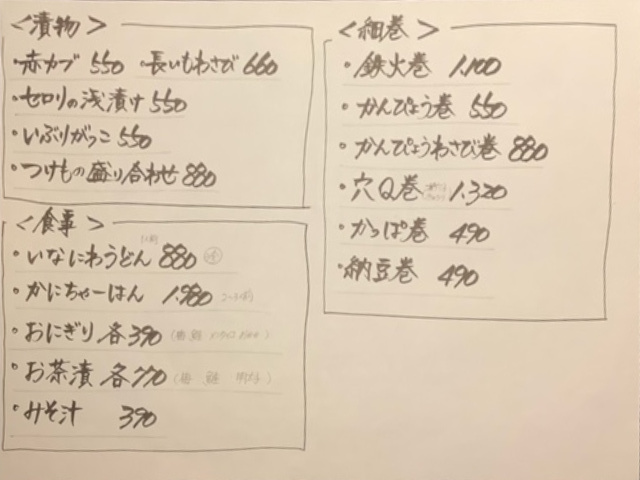 <漬物>
・赤カブ 550 ・長いもわさび 660
・セロリの浅漬け 550
・いぶりがっこ 550
・つけもの盛り合わせ 880
<食事>
・いなにわうどん 880
・かにちゃーはん 1.980
・おにぎり 各390
・お茶漬 各770
・みそ汁 390
<細巻>
・鉄火巻 1.100
・かんぴょう巻 550
・かんぴょうわさび巻 880
・穴Q巻 1.320
・かっぱ巻 490
・納豆巻 490